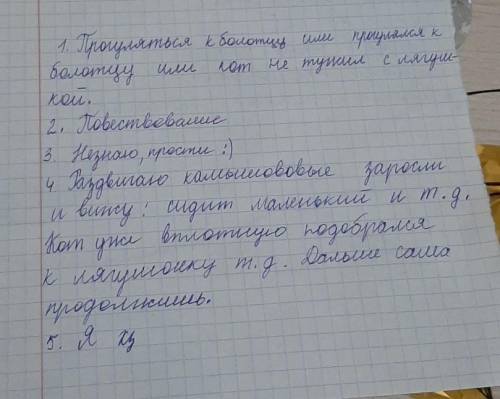 1. Прогуляться к болотцу или прогулялся к
болотцу или кот не тужил с лягуш-
кой.
2. Повествование
3. Незнаю, прости :)
4 Раздвигаю камышововые заросли
и вижу: сидит маленький и т.д.
Кот уже вплотную подобрался
к лягушонку т.д. Дальше сама
продолжишь.
5. Я хз